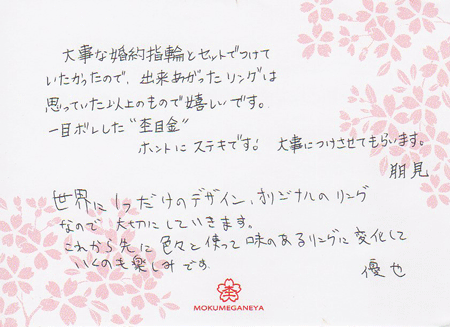 大事な婚約指輪とセットでつけて
いたかったので、出来あがったリングは
思っていた以上のもので嬉しいです。
一目ボレした"杢目金"
ホントに ステキです! 大事につけさせてもらいます。
朋見
世界に1つだけのデザイン、オリジナルのリング
なので 大切にしていきます。
これから先に 色々と使って味のあるリングに変化して
いくのも楽しみです
優也
MOKUMEGANEYA